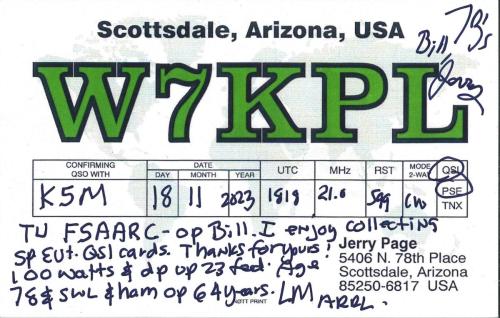 Scottsdale, Arizona, USA
73's
Bill,
Jerry
W7KPL
CONFIRMING QSO WITH DATE UTC MHz RST MODE 2-WAY QSL
DAY MONTH YEAR PSE
K5M 18 11 2023 1818 21.0 599 CW TNX
TU FSAARC - op Bill. I enjoy collecting
sp Evt. QSl cards. Thanks for yours!
100 watts & dp up 23 feet. Age
78 & SWL & ham op 64 years. LM ARRL.
Jerry Page
5406 N. 78th Place
Scottsdale, Arizona
85250-6817 USA
PRINT